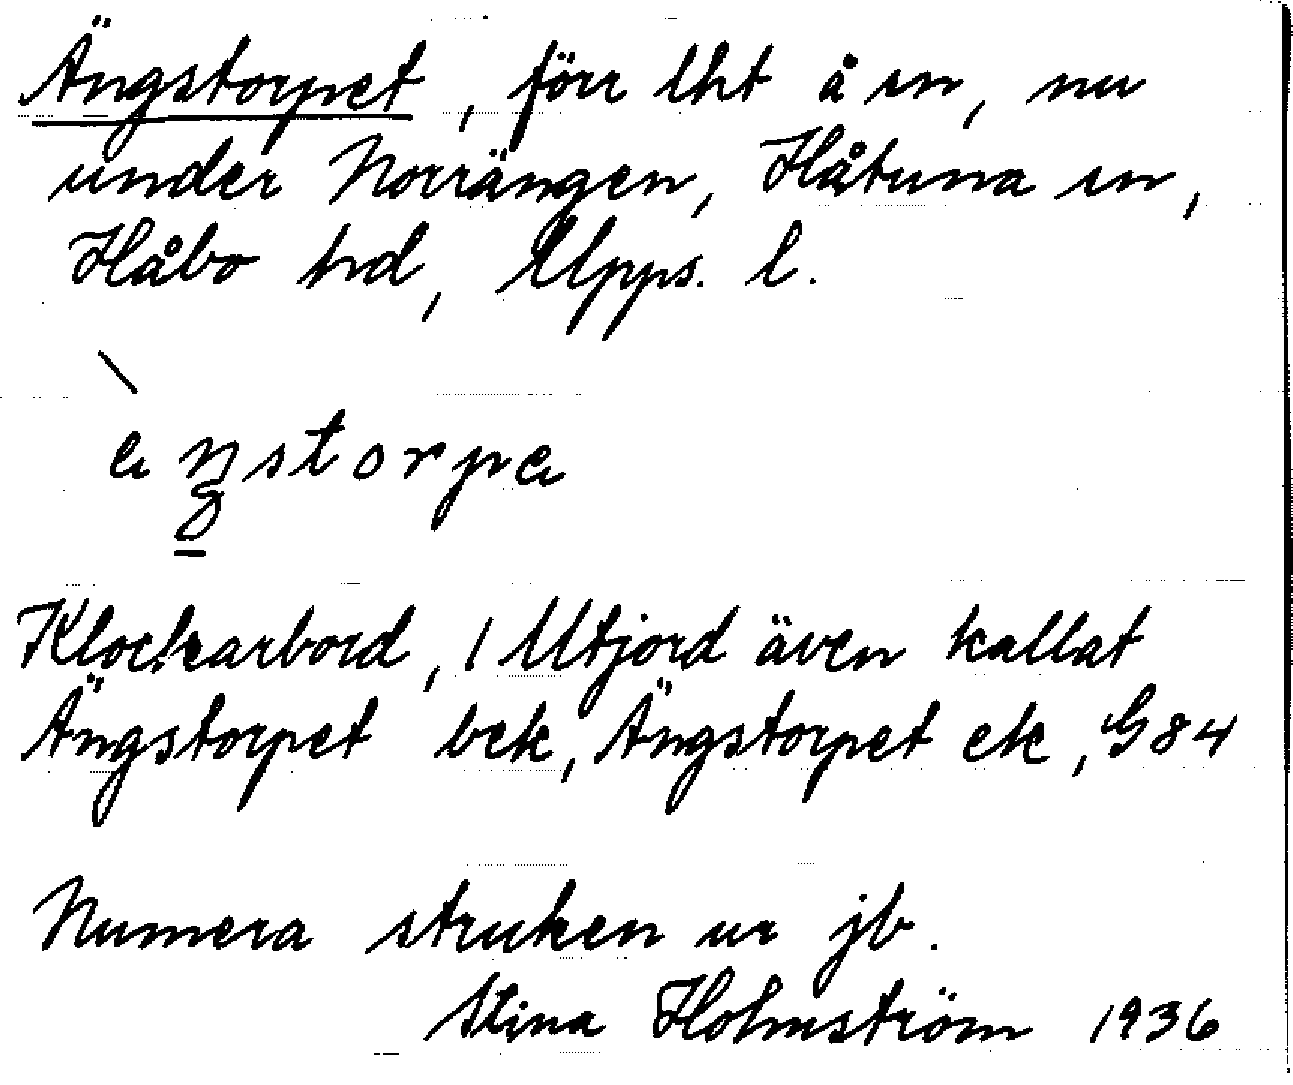 Ängstorpet, förr lht å sn, nu
under Norrängen, Håtuna sn,
Håbo hd, Upps. l.
Klockarbord, 1 Utjord även kallat
Ängstorpet bek, Ängstorpet ek, G84
Numera struken ur jb.
Stina Holmström 1936